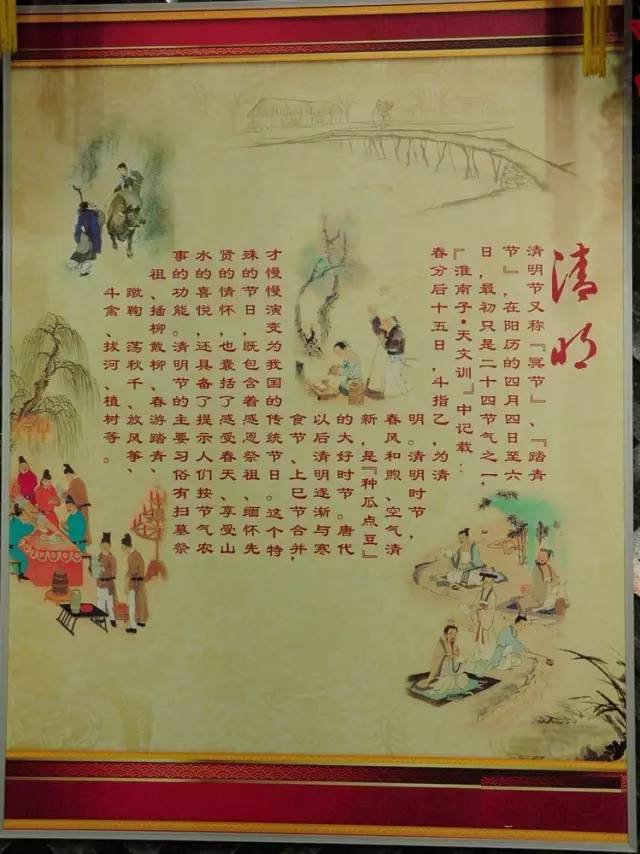 清明
清明节又称『冥节』、『踏青
节』，在阳历的四月四日至六
日，最初只是二十四节气之一，
『淮南子•天文训』中记载：
春分后十五日，斗指乙，为清
明。清明时节，
春风和煦、空气清
新，是『种瓜点豆』
的大好时节。唐代
以后清明逐渐与寒
食节、上巳节合并，
才慢慢演变为我国的传统节日。这个特
殊的节日，既包含着感恩祭祖、缅怀先
贤的情怀，也囊括了感受春天、享受山
水的喜悦，还具备了提示人们按节气农
事的功能。清明节的主要习俗有扫墓祭
祖、插柳戴柳、春游踏青、
蹴鞠、荡秋千、放风筝、
斗禽、拔河、植树等。